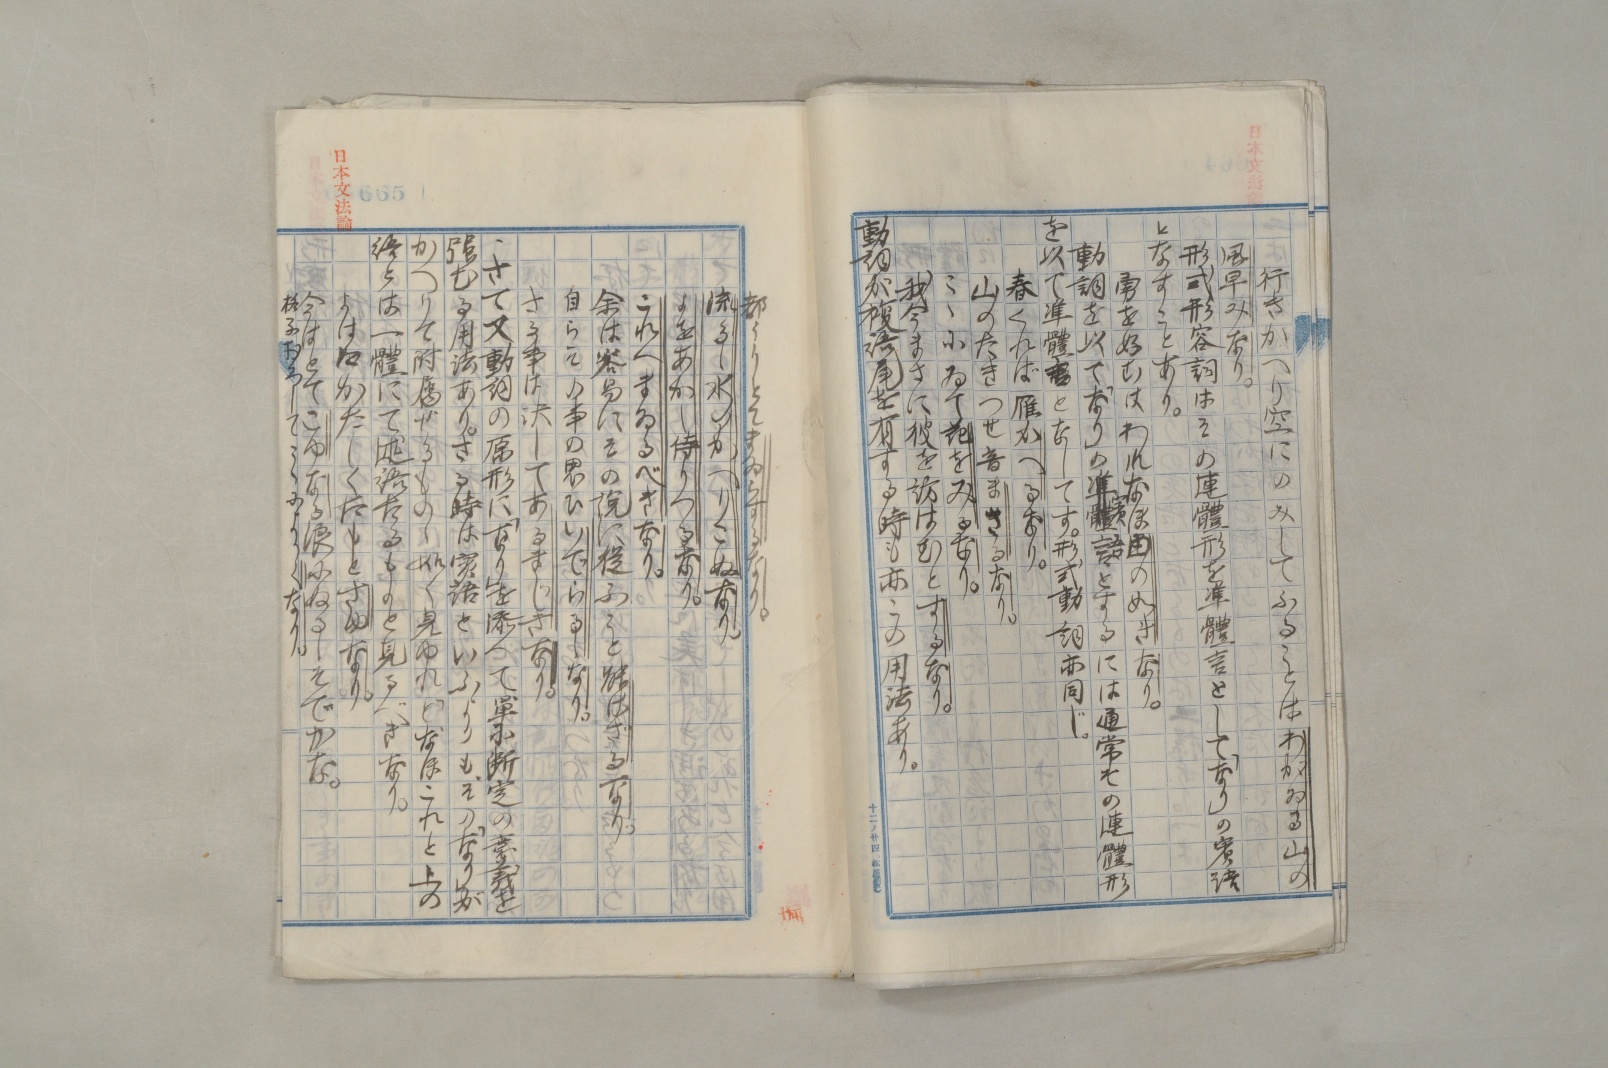 行きかへり空にのみしてふることはわがゐる山の
風早みなり。
形式形容詞はその連體形を準體言として「なり」の賓語
となすことあり。
勇を好むはわれなほ由の如きなり。
動詞を以て「なり」の賓語とするには通常その連體形
を以て準體言となしてす。形式動詞亦同じ。
春くれば雁かへるなり。
山のたきつせ音まさるなり。
こゝにゐて花をみるなり。
我今まさに彼を訪はむとするなり。
動詞が複語尾を有する時も亦この用法あり。
十二ノ廿四
都うりとてまゐらするなり。
流るゝ水のかへりこぬなり。
よをあかし侍りつるなり。
これへまゐるべきなり。
余は容易にその説に從ふこと能はざるなり。
自らその事の思ひいでらるゝなり。
さる事は決してあるまじきなり。
さて又動詞の原形に「なり」を添へて單に斷定の意義を
強むる用法あり。さる時は賓語といふよりも、その「なり」が
かへりて附屬せるものゝ如く見ゆれど、なほこれと上の
語とは一體にて述語たるものと見るべきなり。
今はとてこゆなる
日本文法論
665